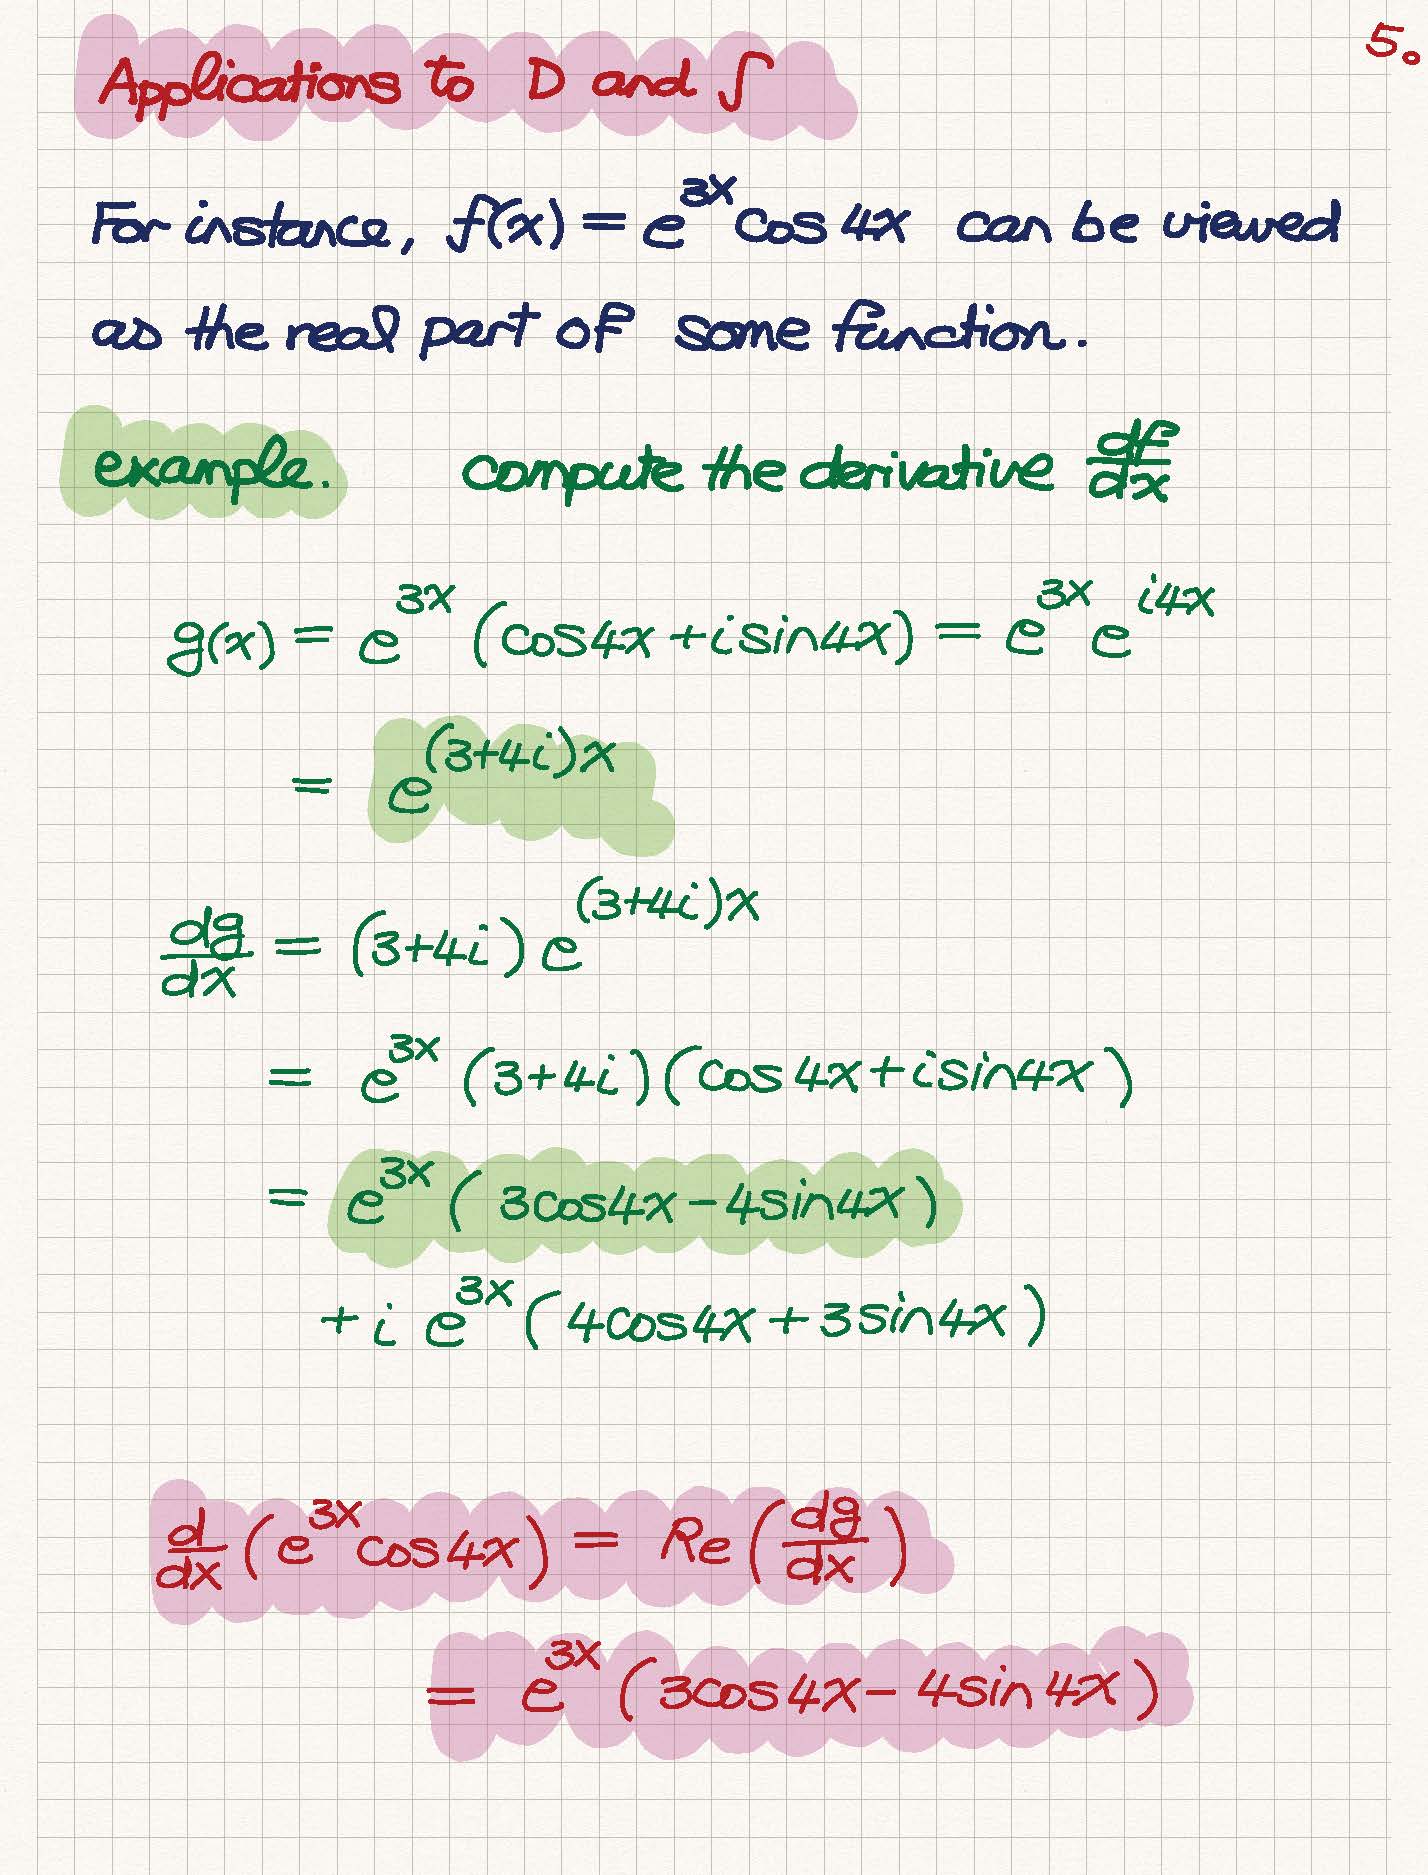 5.
Applications to D and ∫
For instance, f(x) = e^{3x} cos 4x can be viewed
as the real part of some function.
example. compute the derivative df/dx
g(x) = e^{3x} (cos4x + i sin4x) = e^{3x} e^{i4x}
= e^{(3+4i)x}
dg/dx = (3+4i) e^{(3+4i)x}
= e^{3x} (3+4i)(cos 4x + i sin4x)
= e^{3x} (3cos4x - 4sin4x)
+ i e^{3x} (4cos4x + 3sin4x)
d/dx (e^{3x} cos4x) = Re (dg/dx)
= e^{3x} (3cos4x - 4sin4x)